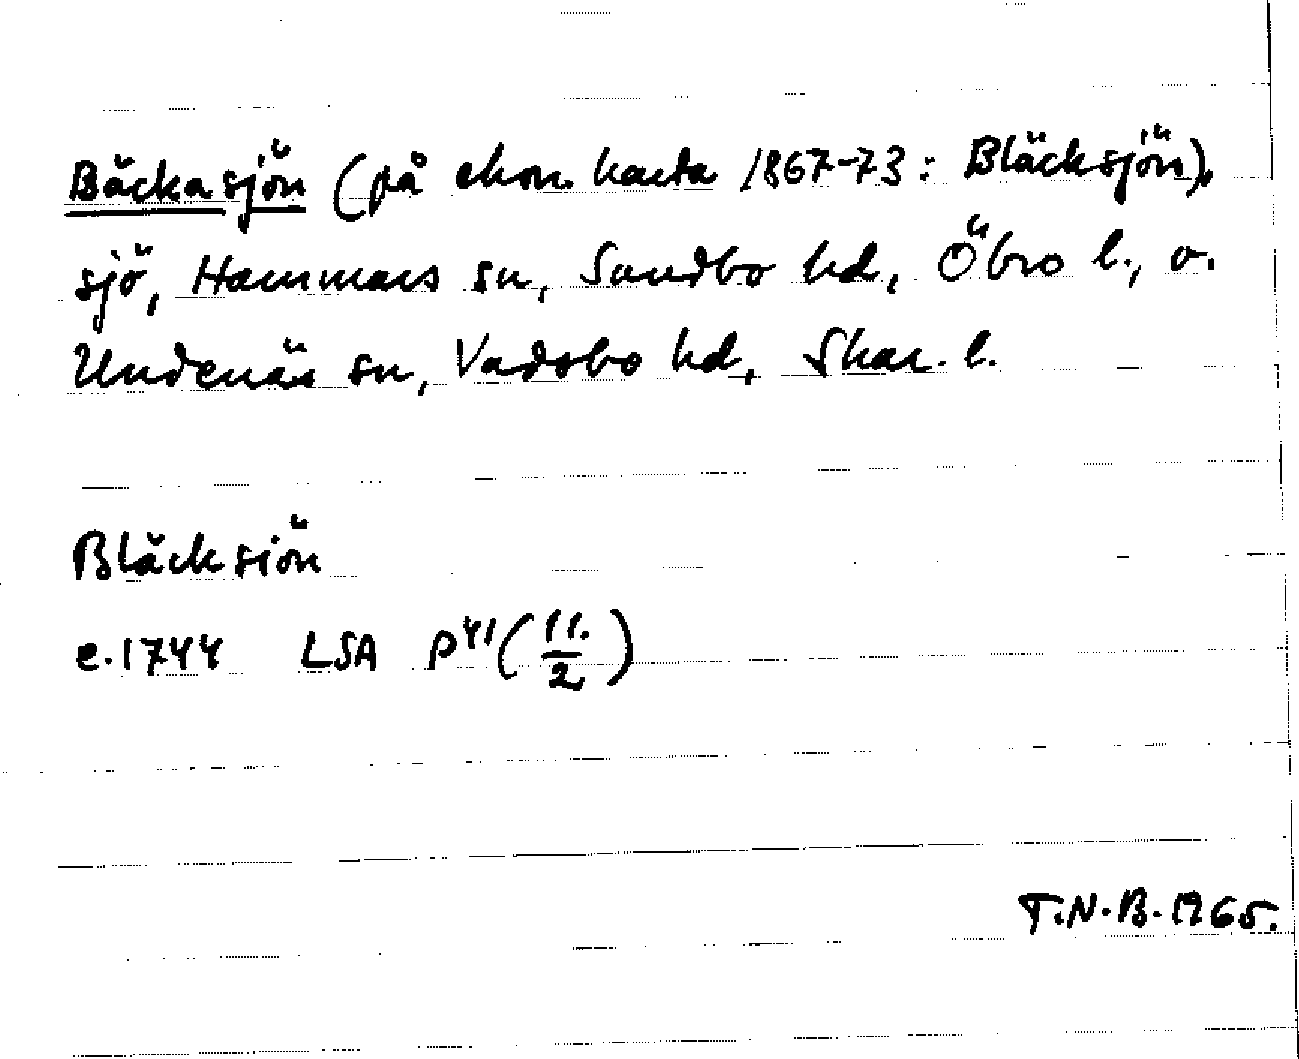 Bäckasjön (på ekon. karta 1867-73: Bläcksjön),
sjö, Hammars sn, Sundbo hd, Öbro l., o.
Undenäs sn, Vadsbo hd, Skar. l.
Bläcksiön
e. 1744 LSA P41(11/2)
T.N.B. 1965.